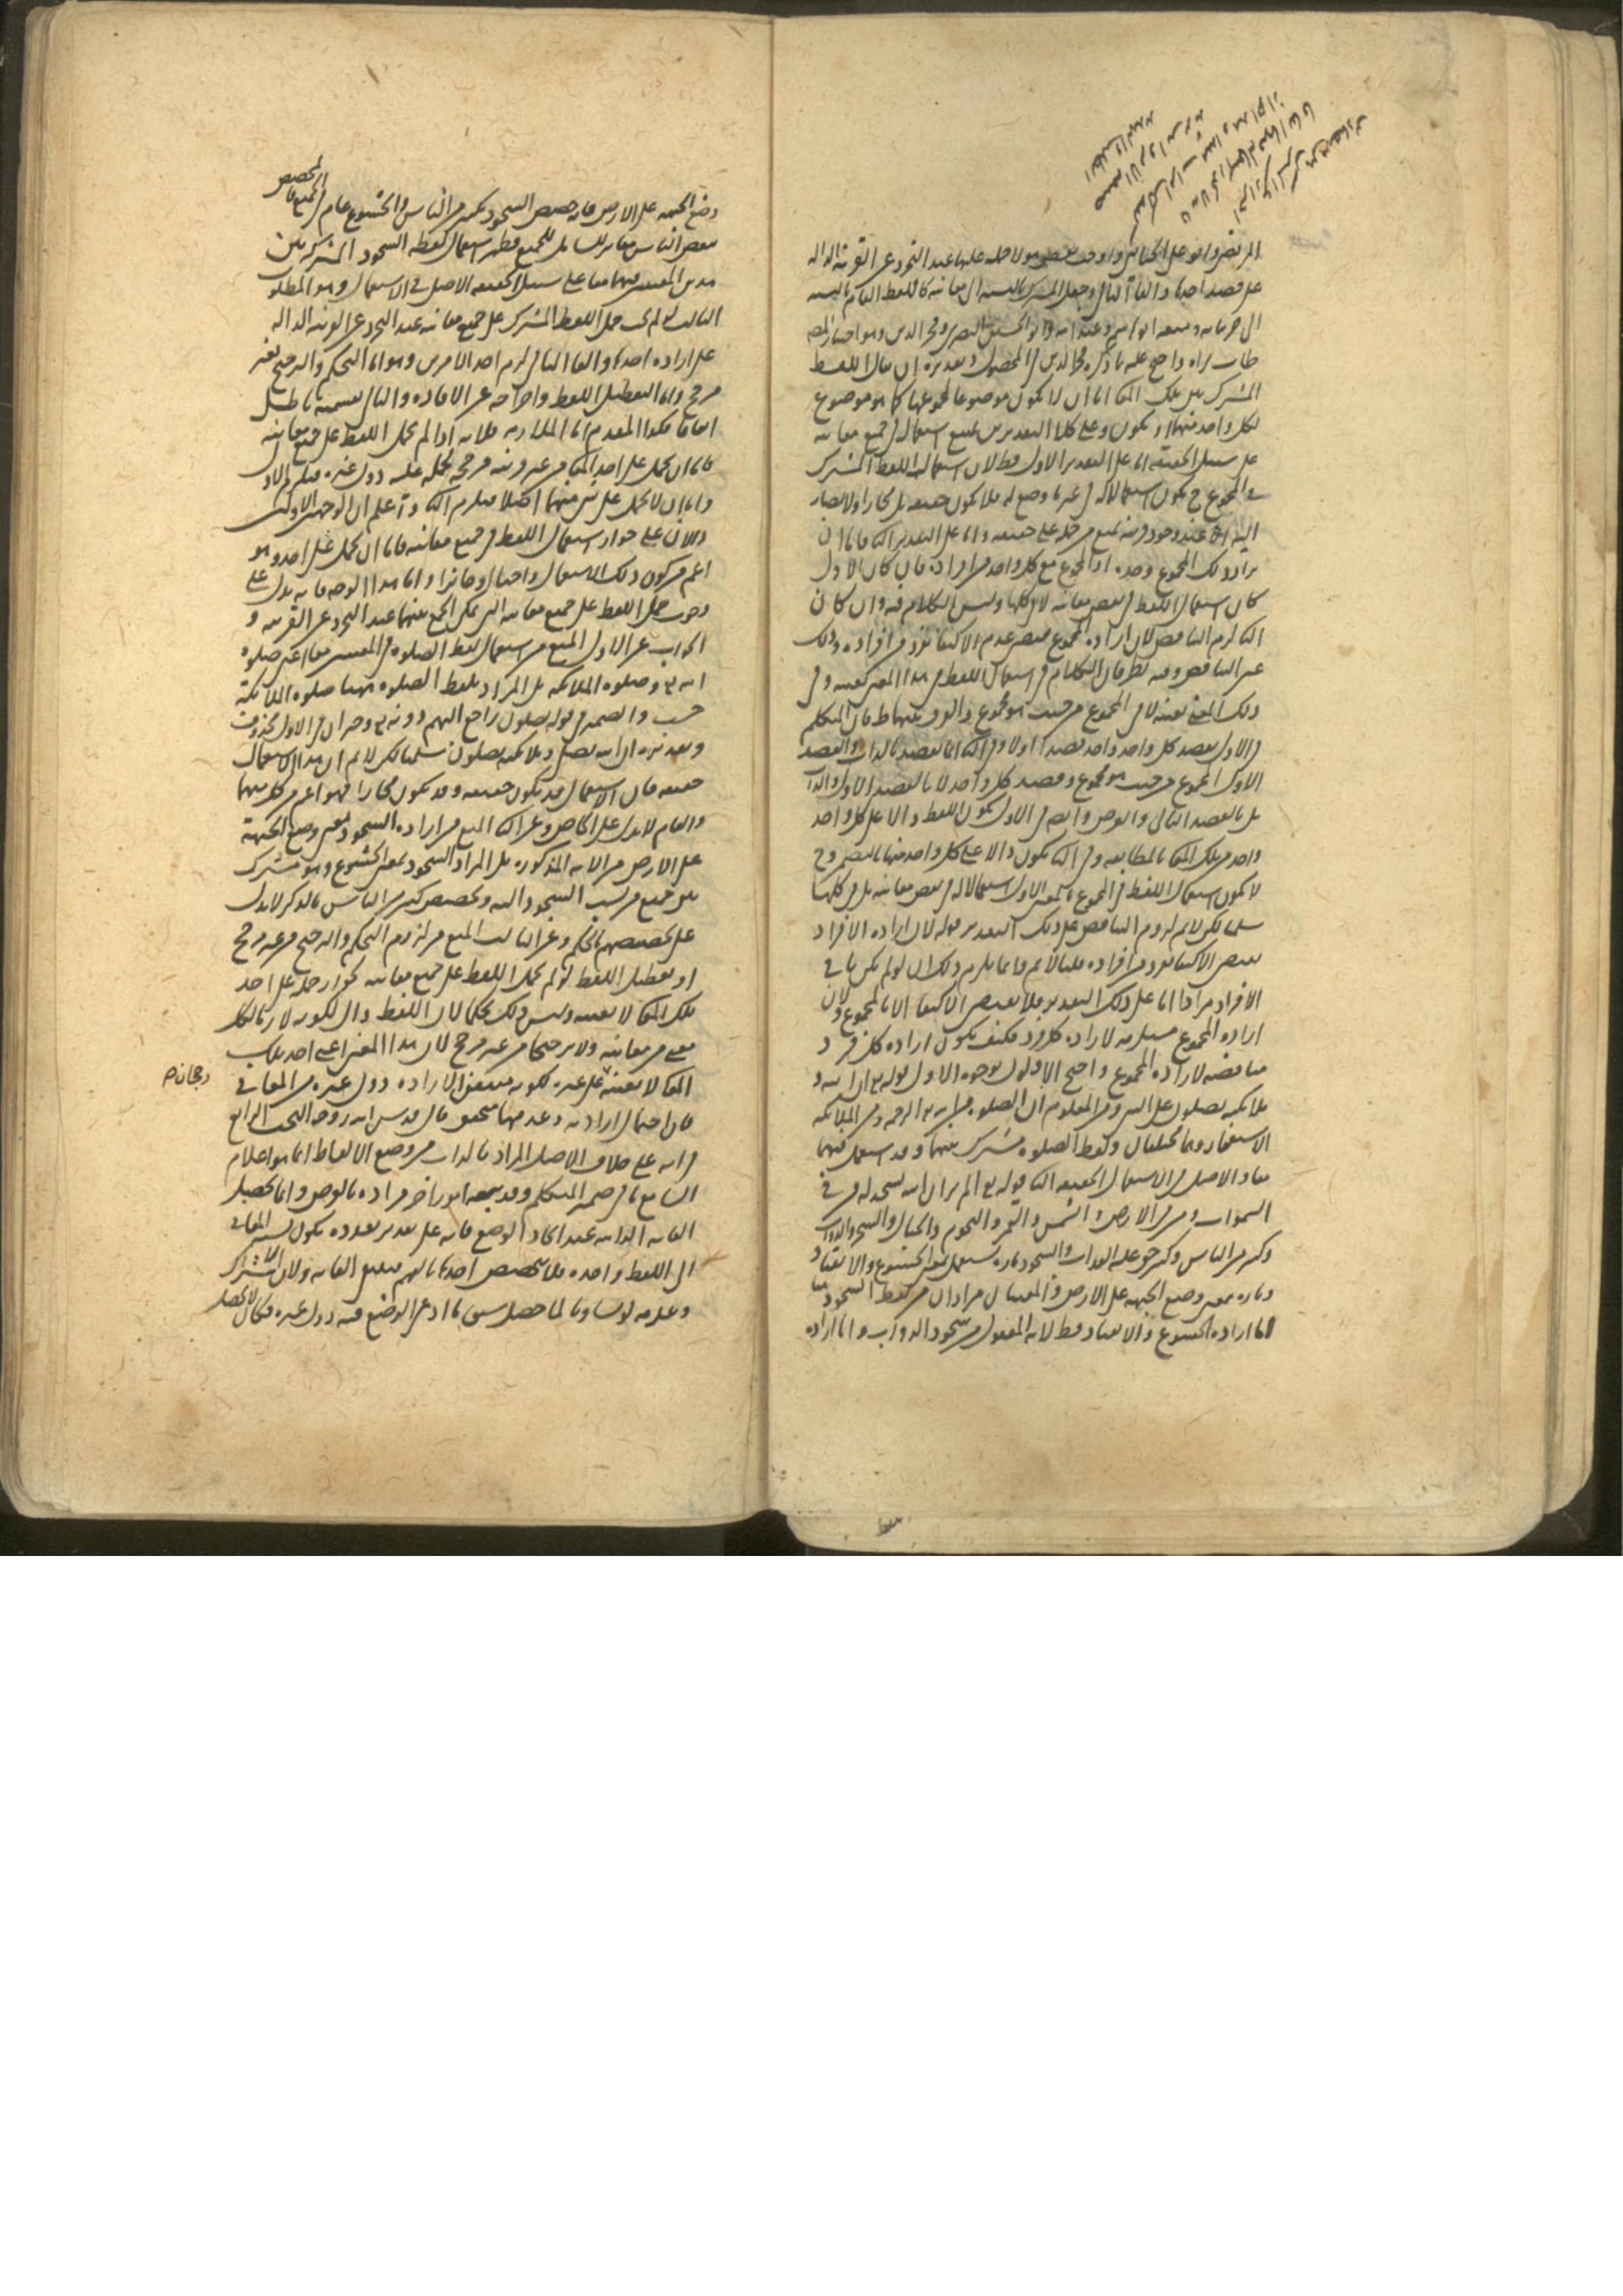 المرتضى وابو على الجبائى واوجب بعض هولا حمله عليها عند التجرد عن القرينة الدالة
على قصد احدها والغا الباقى وجعل المشترك بالنسبة الى معانيه كاللفظ العام بالنسبة
الى جزياته ومنعه ابو هاشم وابو عبد الله وابو الحسين البصرى وفخر الدين وهو اختيار المصنف
طاب ثراه واحتج عليه بما ذكره فخر الدين فى المحصول وتقديره ان يقال اللفظ
المشترك بين تلك المعانى اما ان لا يكون موضوعا لمجموعها كما هو موضوع
لكل واحد منهما او يكون وعلى كلا التقديرين يمتنع استعماله فى جميع معانيه
على سبيل الحقيقة اما على التقدير الاول فظ لان استعمال اللفظ المشترك
فى المجموع ح يكون استعمالا له فى غير ما وضع له فلا يكون حقيقة بل مجازا ولا يصار
اليه الا عند وجود قرينة تمنع من حمله على حقيقته واما على التقدير الثانى فاما ان
يراد ذلك المجموع وحده او المجموع مع كل واحد من افراده فان كان الاول
كان استعمال اللفظ فى بعض معانيه لا فى كلها وليس الكلام فيه وان كان
الثانى لزم التناقض لان ارادة المجموع يقتضى عدم الاكتفا بفرد من افراده وذلك
عين التناقض وفيه نظر فان الكلام فى استعمال اللفظ فى هذا المعنى بعينه وفى
ذلك المعنى بعينه لا فى المجموع من حيث هو مجموع والفرق بينهما ظ فان المتكلم
فى الاول يقصد كل واحد واحد قصدا اولا وفى الثانى انما يقصد بالذات والقصد
الاول المجموع من حيث هو مجموع وقصد كل واحد لا بالقصد الاول والذات
بل بالقصد الثانى والعرض وايضا فى الاول يكون اللفظ دالا على كل واحد
واحد من تلك المعانى بالمطابقة وفى الثانى يكون دالا على كل واحد منها بالتضمن وح
لا يكون استعمال اللفظ فى المجموع بالمعنى الاول استعمالا له فى بعض معانيه بل فى كلها
سلمنا لكن لانم لزوم التناقض على ذلك التقدير قوله لان ارادة الافراد
يقتضى الاكتفا بفرد من افراده قلنا لانم وانما يلزم ذلك ان لو لم يكن باقى
الافراد مرادا اما على ذلك التقدير فلا يقتضى الاكتفا الا بالمجموع ولان
ارادة المجموع مستلزمة لارادة كل فرد فكيف يكون ارادة كل فرد
مناقضة لارادة المجموع واحتج الاولون بوجوه الاول قوله تع ان الله و
ملائكته يصلون على النبى ومن المعلوم ان الصلوة من الله تع الرحمة ومن الملائكة
الاستغفار وهما مختلفان ولفظ الصلوة مشترك بينهما وقد استعمل فيهما
معا والاصل فى الاستعمال الحقيقة الثانى قوله تع الم تر ان الله يسجد له من فى
السموات ومن فى الارض والشمس والقمر والنجوم والجبال والشجر والدواب
وكثير من الناس وكثير حق عليه العذاب والسجود تارة يستعمل بمعنى الخشوع والانقياد
وتارة بمعنى وضع الجبهة على الارض والمعنيان مرادان من لفظ السجود هنا
اما ارادة الخشوع والانقياد فظ لانه المعقول من سجود الدواب واما ارادة
وضع الجبهة على الارض فانه خصص السجود بكثير من الناس والخشوع عام فى الجميع فالتخصيص
ببعض الناس مغاير للشامل للجميع فظهر استعمال لفظه السجود المشترك بين
هذين المعنيين فيهما معا على سبيل الحقيقة الاصل فى الاستعمال وهو المطلوب
الثالث لو لم يجب حمل اللفظ المشترك على جميع معانيه عند التجرد عن القرينة الدالة
على ارادة احدها والغا الباقى لزم احد الامرين وهو اما التحكم والترجيح بغير
مرجح واما تعطيل اللفظ واخراجه عن الافادة والتالى بقسميه باطل
اتفاقا فكذا المقدم اما الملازمة فلانه اذا لم يحمل اللفظ على جميع معانيه
فاما ان يحمل على احد المعانى من غير قرينة مرجحة لحمله عليه دون غيره فيلزم الاول
واما ان لا يحمل على شى منهما اصلا فيلزم الثانى واعلم ان الوجهين الاولين
دالان على جواز استعمال اللفظ فى جميع معانيه فاما ان يحمل على احد وهو
اعم من كون ذلك الاستعمال واجبا او جائزا واما هذا الوجه فانه يدل على
وجوب حمل اللفظ على جميع معانيه التى يمكن الجمع بينهما عند التجرد عن القرينة و
الجواب عن الاول المنع من استعمال لفظ الصلوة فى المعنيين معا اعنى صلوة
الله تع وصلوة الملائكة بل المراد بلفظ الصلوة ههنا صلوة الملائكة
حسب والضمير فى قوله يصلون راجع اليهم دونه تع وخبر ان فى الاول محذوف
وتقديره ان الله يصلى وملائكته يصلون سلمنا لكن لانم ان هذا الاستعمال
حقيقة فان الاستعمال قد يكون حقيقة وقد يكون مجازا فهو اعم من كل منهما
والعام لا يدل على الخاص وعن الثانى المنع من ارادة السجود بمعنى وضع الجبهة
على الارض من الاية المذكورة بل المراد السجود بمعنى الخشوع وهو مشترك
بين جميع من نسب السجود اليه وتخصيص كثير من الناس بالذكر لا يدل
على تخصيصهم بالحكم وعن الثالث المنع من لزوم التحكم والترجيح من غير مرجح
او تعطيل اللفظ لو لم يحمل اللفظ على جميع معانيه لجواز حمله على احد
تلك المعانى لا بعينه وليس ذلك تحكما لان اللفظ دال لكونه لازما لكل
معنى من معانيه ولا ترجيحا من غير مرجح لان هذا المعنى اعنى احد تلك
المعانى لا بعينه على غيره لكونه متيقن الارادة دون غيره من المعانى
رجحانه
فان احتمال ارادته وعدمها متحقق قال قدس الله روحه البحث الرابع
فى انه على خلاف الاصل المراد بالذات من وضع الالفاظ انما هو اعلام
السامع ما فى ضمير المتكلم وقد يتبعه امور اخر مرادة بالعرض وانما تحصل
الغاية الذاتية عند اتحاد الوضع فانه على تقدير تعدده يكون نسبة المعانى
الى اللفظ واحدة فلا تخصيص احدها بالفهم فينتفى الغاية ولان الاشتراك
وعدمه لو تساويا لما حصل سبق ما ادعى الوضع فيه دون غيره فكان لا يحصل